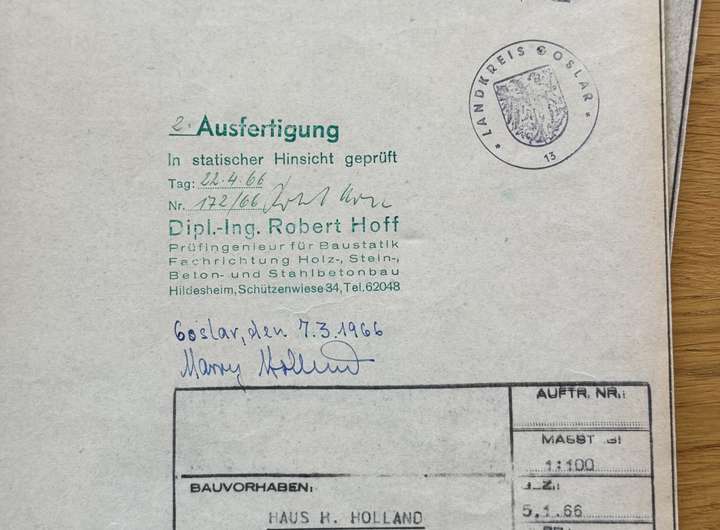 * LANDKREIS GOSLAR *
13
2. Ausfertigung
In statischer Hinsicht geprüft
Tag: 22.4.66
Nr. 172/66
Dipl.-Ing. Robert Hoff
Prüfingenieur für Baustatik
Fachrichtung Holz-, Stein-,
Beton- und Stahlbetonbau
Hildesheim, Schützenwiese 34, Tel. 62048
Goslar, den 7.3.1966
Holland
AUFTR. NR.:
MASST
1:100
BAUVORHABEN:
5.1.66
HAUS H. HOLLAND